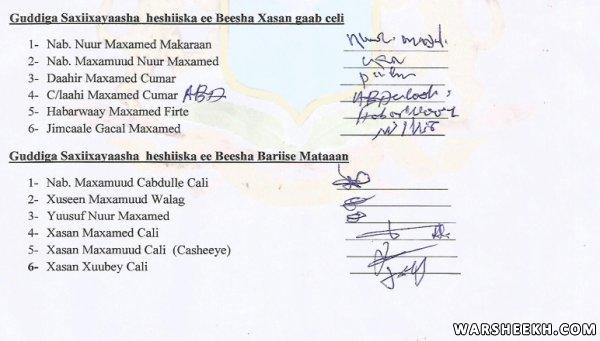 Guddiga Saxiixayaasha heshiiska ee Beesha Xasan gaab celi
1- Nab. Nuur Maxamed Makaraan
2- Nab. Maxamuud Nuur Maxamed
3- Daahir Maxamed Cumar
4- C/laahi Maxamed Cumar ABD
5- Habarwaay Maxamed Firte
6- Jimcaale Gacal Maxamed
Guddiga Saxiixayaasha heshiiska ee Beesha Bariise Mataaan
1- Nab. Maxamuud Cabdulle Cali
2- Xuseen Maxamuud Walag
3- Yuusuf Nuur Maxamed
4- Xasan Maxamed Cali
5- Xasan Maxamuud Cali (Casheeye)
6- Xasan Xuubey Cali
WARSHEEKH.COM